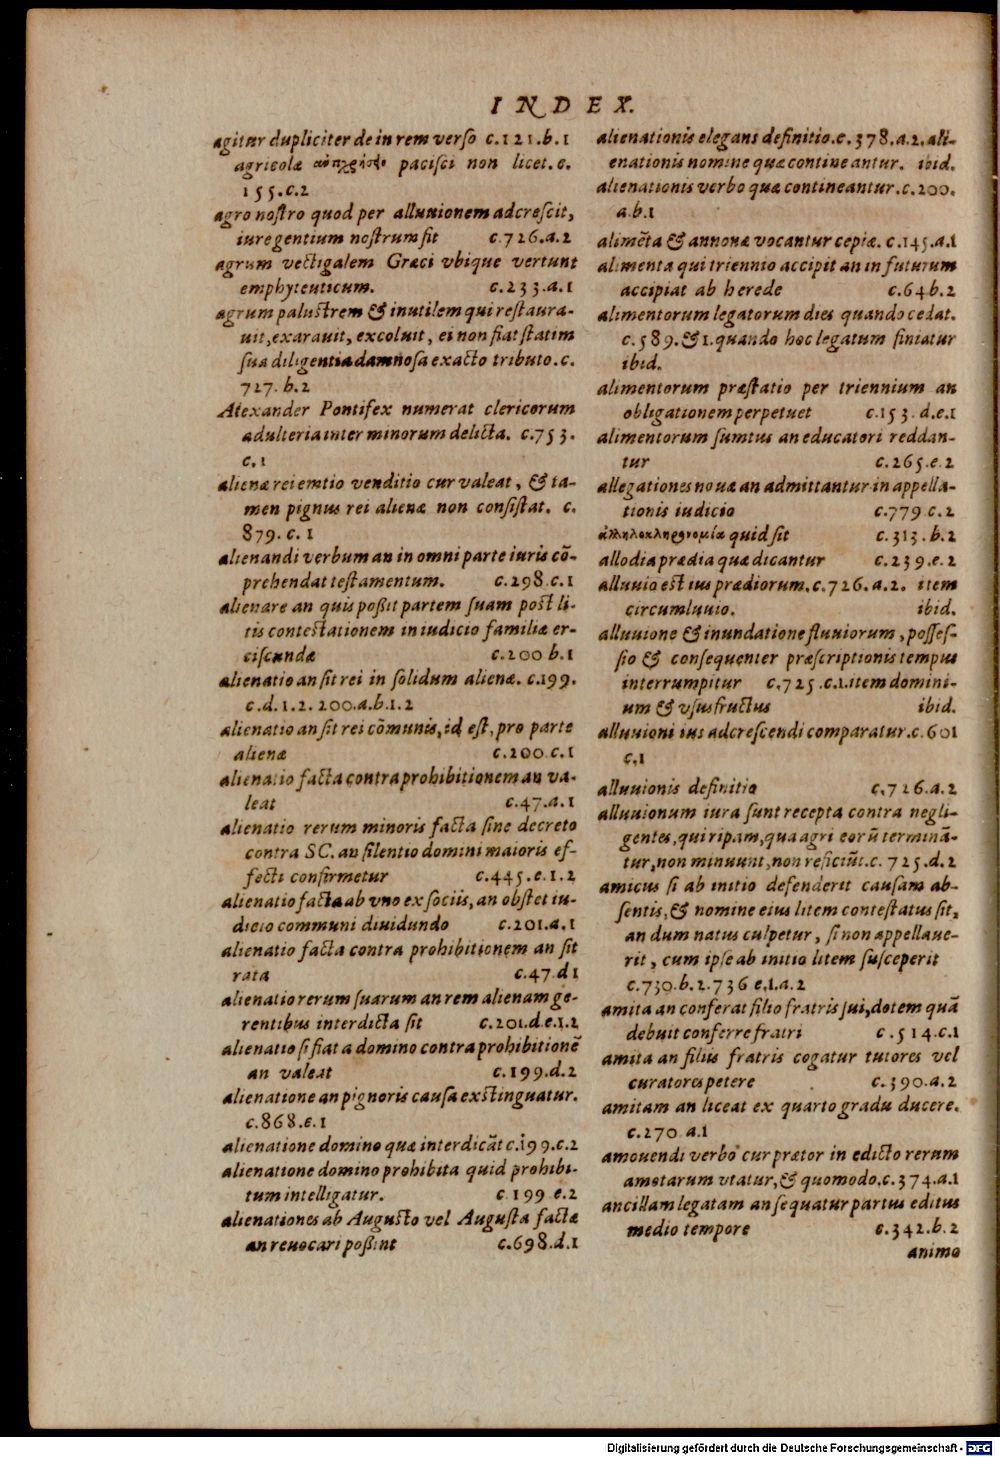 INDEX.
agitur dupliciter de in rem verso c.121.b.1
agricolæ pacisci non licet. c.
155.c.2
agro nostro quod per alluuionem adcrescit,
iure gentium nostrum fit c.726.a.2
agrum vectigalem Græci vbique vertunt
emphyteuticum. c.233.a.1
agrum palustrem & inutilem qui restaura-
uit, exarauit, excoluit, ei non fiat statim
sua diligentia damnosa exacto tributo. c.
727. b.2
Alexander Pontifex numerat clericorum
adulteria inter minorum delicta. c.753.
c.1
alienæ rei emtio venditio cur valeat, & ta-
men pignus rei alienæ non consistat. c.
879. c. 1
alienandi verbum an in omni parte iuris cō-
prehendat testamentum. c.298.c.1
alienare an quis poßit partem suam post li-
tis contestationem in iudicio familiæ er-
ciscundæ c.200 b.1
alienatio an sit rei in solidum alienæ. c.199.
c.d.1.2.200.a.b.1.2
alienatio an sit rei cōmunis, id est, pro parte
alienæ c.200.c.1
alienatio facta contra prohibitionem an va-
leat c.47.a.1
alienatio rerum minoris facta sine decreto
contra SC. an silentio domini maioris ef-
fecti confirmetur c.445.e.1.2
alienatio facta ab vno ex sociis, an obstet iu-
dicio communi diuidundo c.201.a.1
alienatio facta contra prohibitionem an sit
rata c.47.d1
alienatio rerum suarum an rem alienam ge-
rentibus interdicta sit c.201.d.e.1.2
alienatio si fiat a domino contra prohibitionē
an valeat c.199.d.2
alienatione an pignoris causa exstinguatur.
c.868.e.1
alienatione domino quæ interdicāt c.199.c.2
alienatione domino prohibita quid prohibi-
tum intelligatur. c 199 e.2
alienationes ab Augusto vel Augusta factæ
an reuocari poßint c.698.d.1
alienationis elegans definitio.c.378.a.2.ali-
enationis nomine quæ contineantur. ibid.
alienationis verbo quæ contineantur.c.200.
a.b.1
alimēta & annonæ vocantur cepiæ. c.145.a.1
alimenta qui triennio accipit an in futurum
accipiat ab herede c.64b.2
alimentorum legatorum dies quando cedat.
c.589.&1.quando hoc legatum finiatur
ibid.
alimentorum præstatio per triennium an
obligationem perpetuet c.153.d.e.1
alimentorum sumtus an educatori reddan-
tur c.265.e.2
allegationes nouæ an admittantur in appella-
tionis iudicio c.779 c.2
ἀλληλοκληρονομία quid sit c.313.b.2
allodia prædia quæ dicantur c.239.e.2
alluuio est ius prædiorum.c.726.a.2. item
circumluuio. ibid.
alluuione & inundatione fluuiorum, posses-
sio & consequenter præscriptionis tempus
interrumpitur c.725.c.1.item domini-
um & vsusfructus ibid.
alluuioni ius adcrescendi comparatur.c.601
c.1
alluuionis definitio c.726.a.2
alluuionum iura sunt recepta contra negli-
gentes, qui ripam, qua agri eorū terminā-
tur, non minuunt, non reficiūt.c. 725.d.2
amicus si ab initio defenderit causam ab-
sentis, & nomine eius litem contestatus sit,
an dum natus culpetur, si non appellaue-
rit, cum ipse ab initio litem susceperit
c.730.b.2.736 e.1.a.2
amita an conferat filio fratris sui, dotem quā
debuit conferre fratri c.514.c.1
amita an filiis fratris cogatur tutores vel
curatores petere c.390.a.2
amitam an liceat ex quarto gradu ducere.
c.270 a.1
amouendi verbo cur prætor in edicto rerum
amotarum vtatur, & quomodo.c.374.a.1
ancillam legatam an sequatur partus editus
medio tempore c.342.b.2
animo
Digitalisierung gefördert durch die Deutsche Forschungsgemeinschaft - DFG